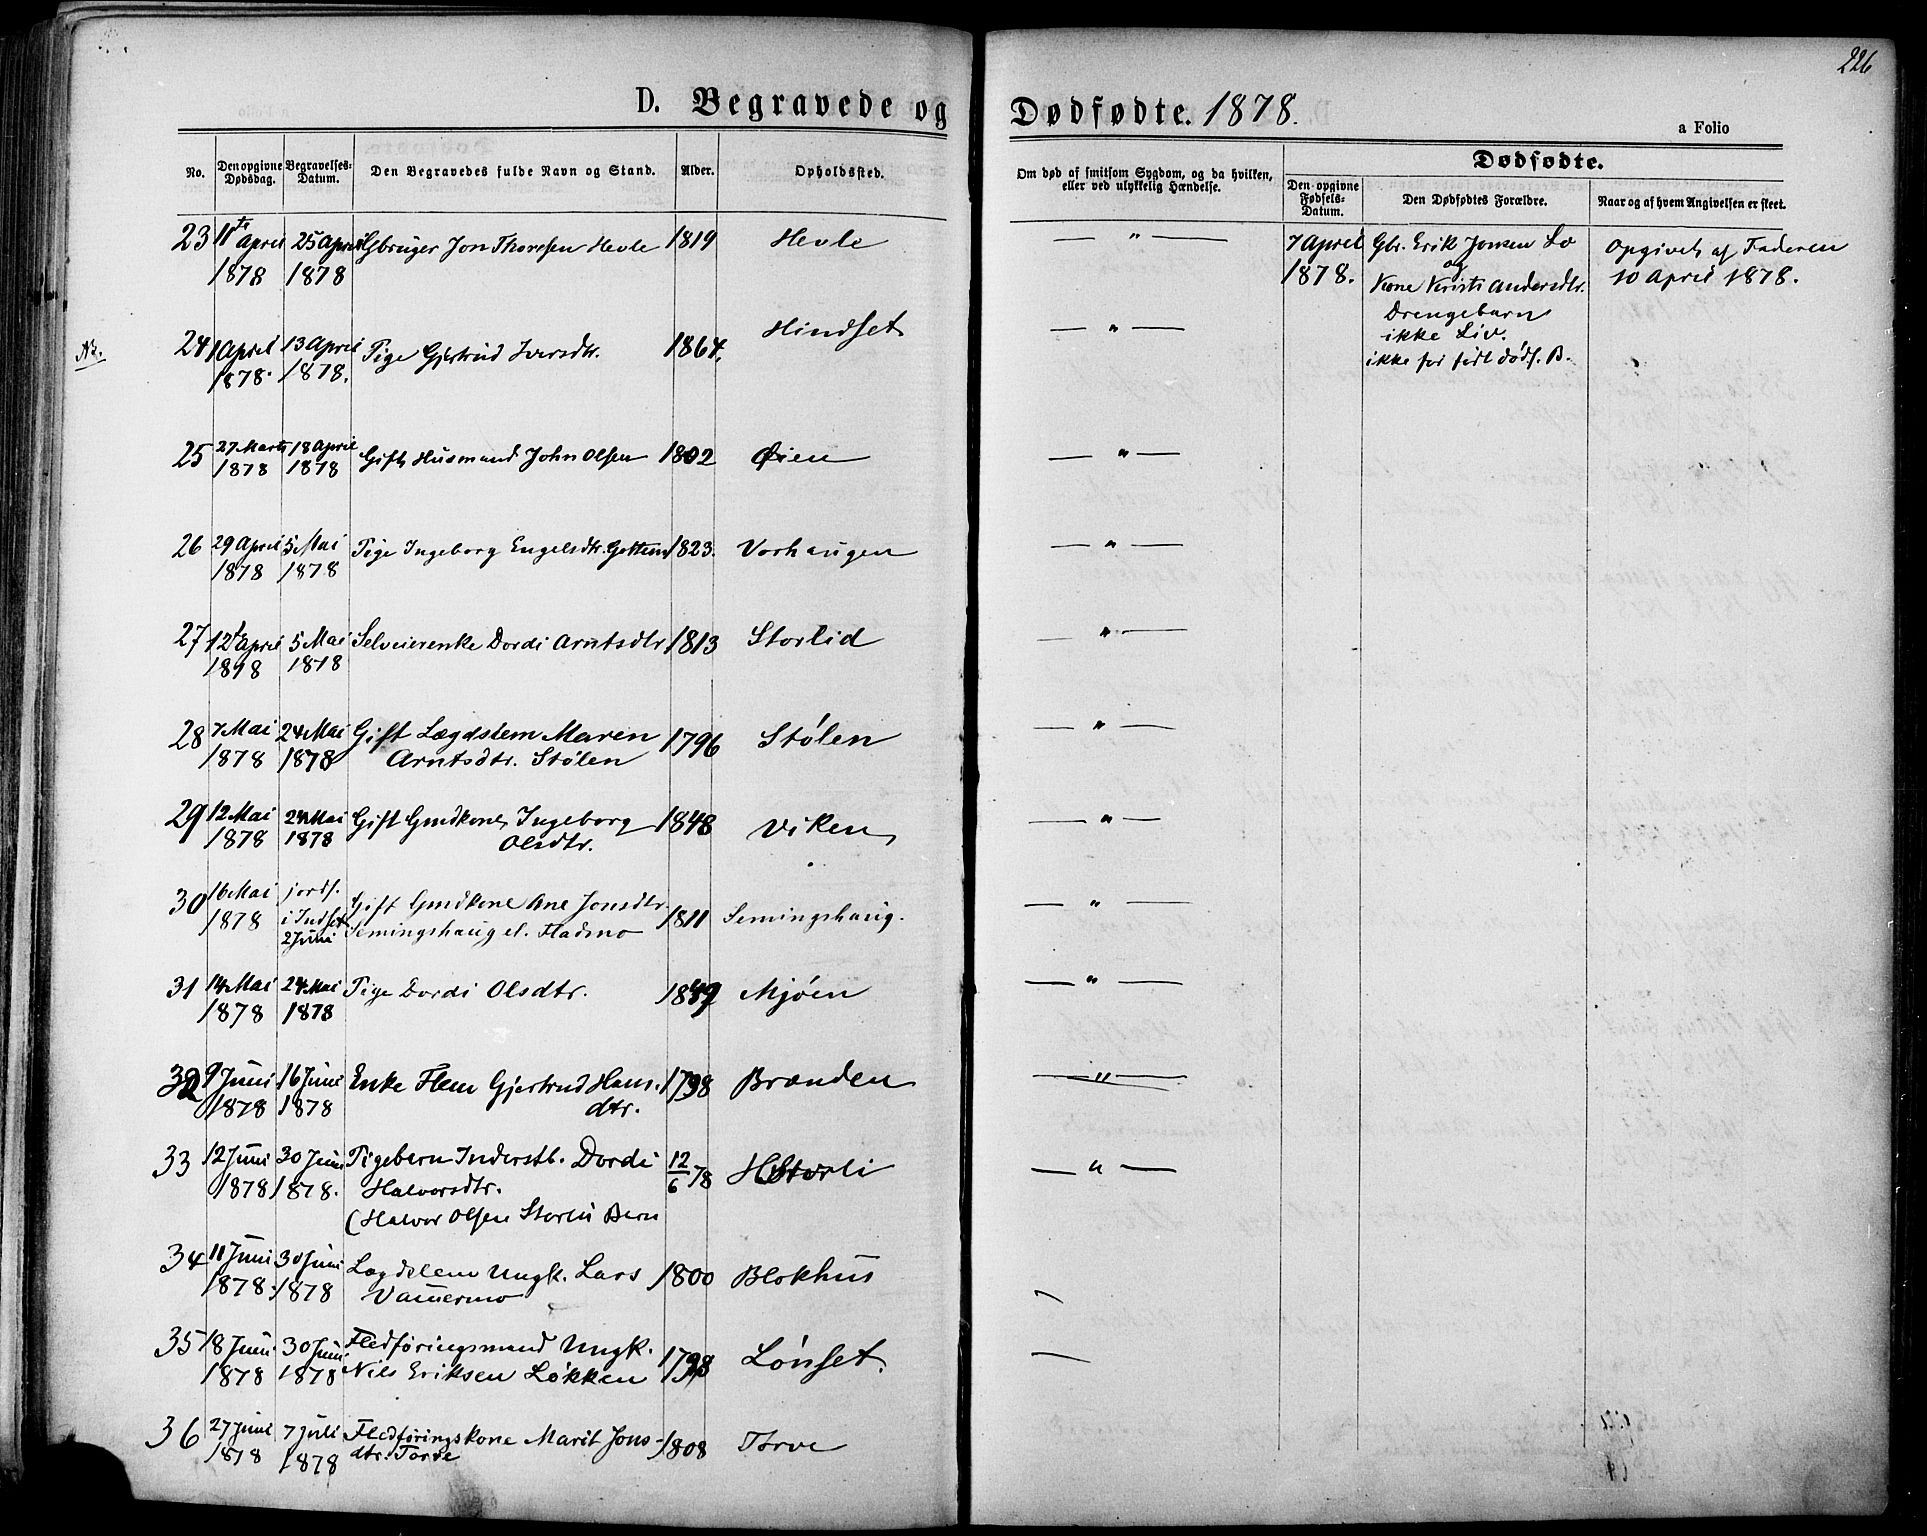 226
D. Begravede og Dødfødte. 1878.
a Folio
No.
Den opgivne Dødsdag.
Begravelses-Datum.
Den Begravedes fulde Navn og Stand.
Alder.
Opholdssted.
Om død af smitsom Sygdom, og da hvilken,
eller ved ulykkelig Hændelse.
Dødfødte.
Den opgivne Fødsels-Datum.
Den Dødfødtes Forældre.
Naar og af hvem Angivelsen er skeet.
23 11te April 25 April Gbruger Jon Thoresen Hevle 1819 Hevle — " —
1878 1878
7 April Gbr. Erik Jonsen Lo Opgivet af Faderen
1878. og 10 April 1878.
Kone Kirsti Andersdtr.
Drengebarn
ikke Liv.
ikke før født dødf. B.
Nz.
24 1 April 13 April Pige Gjertrud Iversdtr. 1864. Hindset — " —
1878. 1878.
25 27 Marts 18 April Gift Husmand John Olsen 1802 Øien — " —
1878 1878
26 29 April 5 Mai Pige Ingeborg Engelsdtr. Gottem 1823. Vorhaugen — " —
1878 1878
27 12te April 5 Mai Selveierenke Dordi Arntsdtr. 1813 Storlid — " —
1878 1878
28 7 Mai 24 Mai Gift Lægdslem Maren 1796 Stølen — " —
1878 1878 Arntsdtr. Stølen
29 12 Mai 24 Mai Gift Gmdkone Ingeborg 1848 Viken — " —
1878 1878 Olsdtr.
30 16 Mai jordf. Gift Gmdkone Ane Jonsdtr. 1811 Semingshaug. — " —
1878 i Indset Semingshaug el. Fladmo
2 Juni
31 14 Mai 24 Mai Pige Dordi Olsdtr. 1849 Mjøen — " —
1878 1878
32 9 Juni 16 Juni Enke Flem Gjertrud Hans- 1798 Brænden — " —
1878 1878 dtr.
33 12 Juni 30 Juni Pigebarn Inderstb. Dordi 12/6 78 Storli — " —
1878 1878. Halvorsdtr.
(Halvor Olsen Storli Barn
34 11 Juni 30 Juni Lægdslem Ungk. Lars 1800 Blokhus
1878. 1878 Vammermo
35 18 Juni 30 Juni Fledføringsmand Ungk. 1798 Lønset.
1878 1878 Nils Eriksen Løkken
36 27 Juni 7 Juli Fledføringskone Marit Jons- 1808 Torve
1878 1878 dtr. Torve